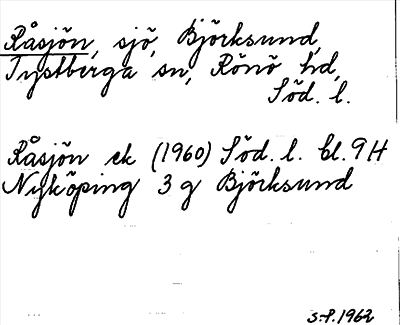 Råsjön, sjö, Björksund,
Tystberga sn, Rönö hd,
Söd. l.
Råsjön ek (1960) Söd. l. bl. 9H
Nyköping 3 g Björksund
S-P. 1962